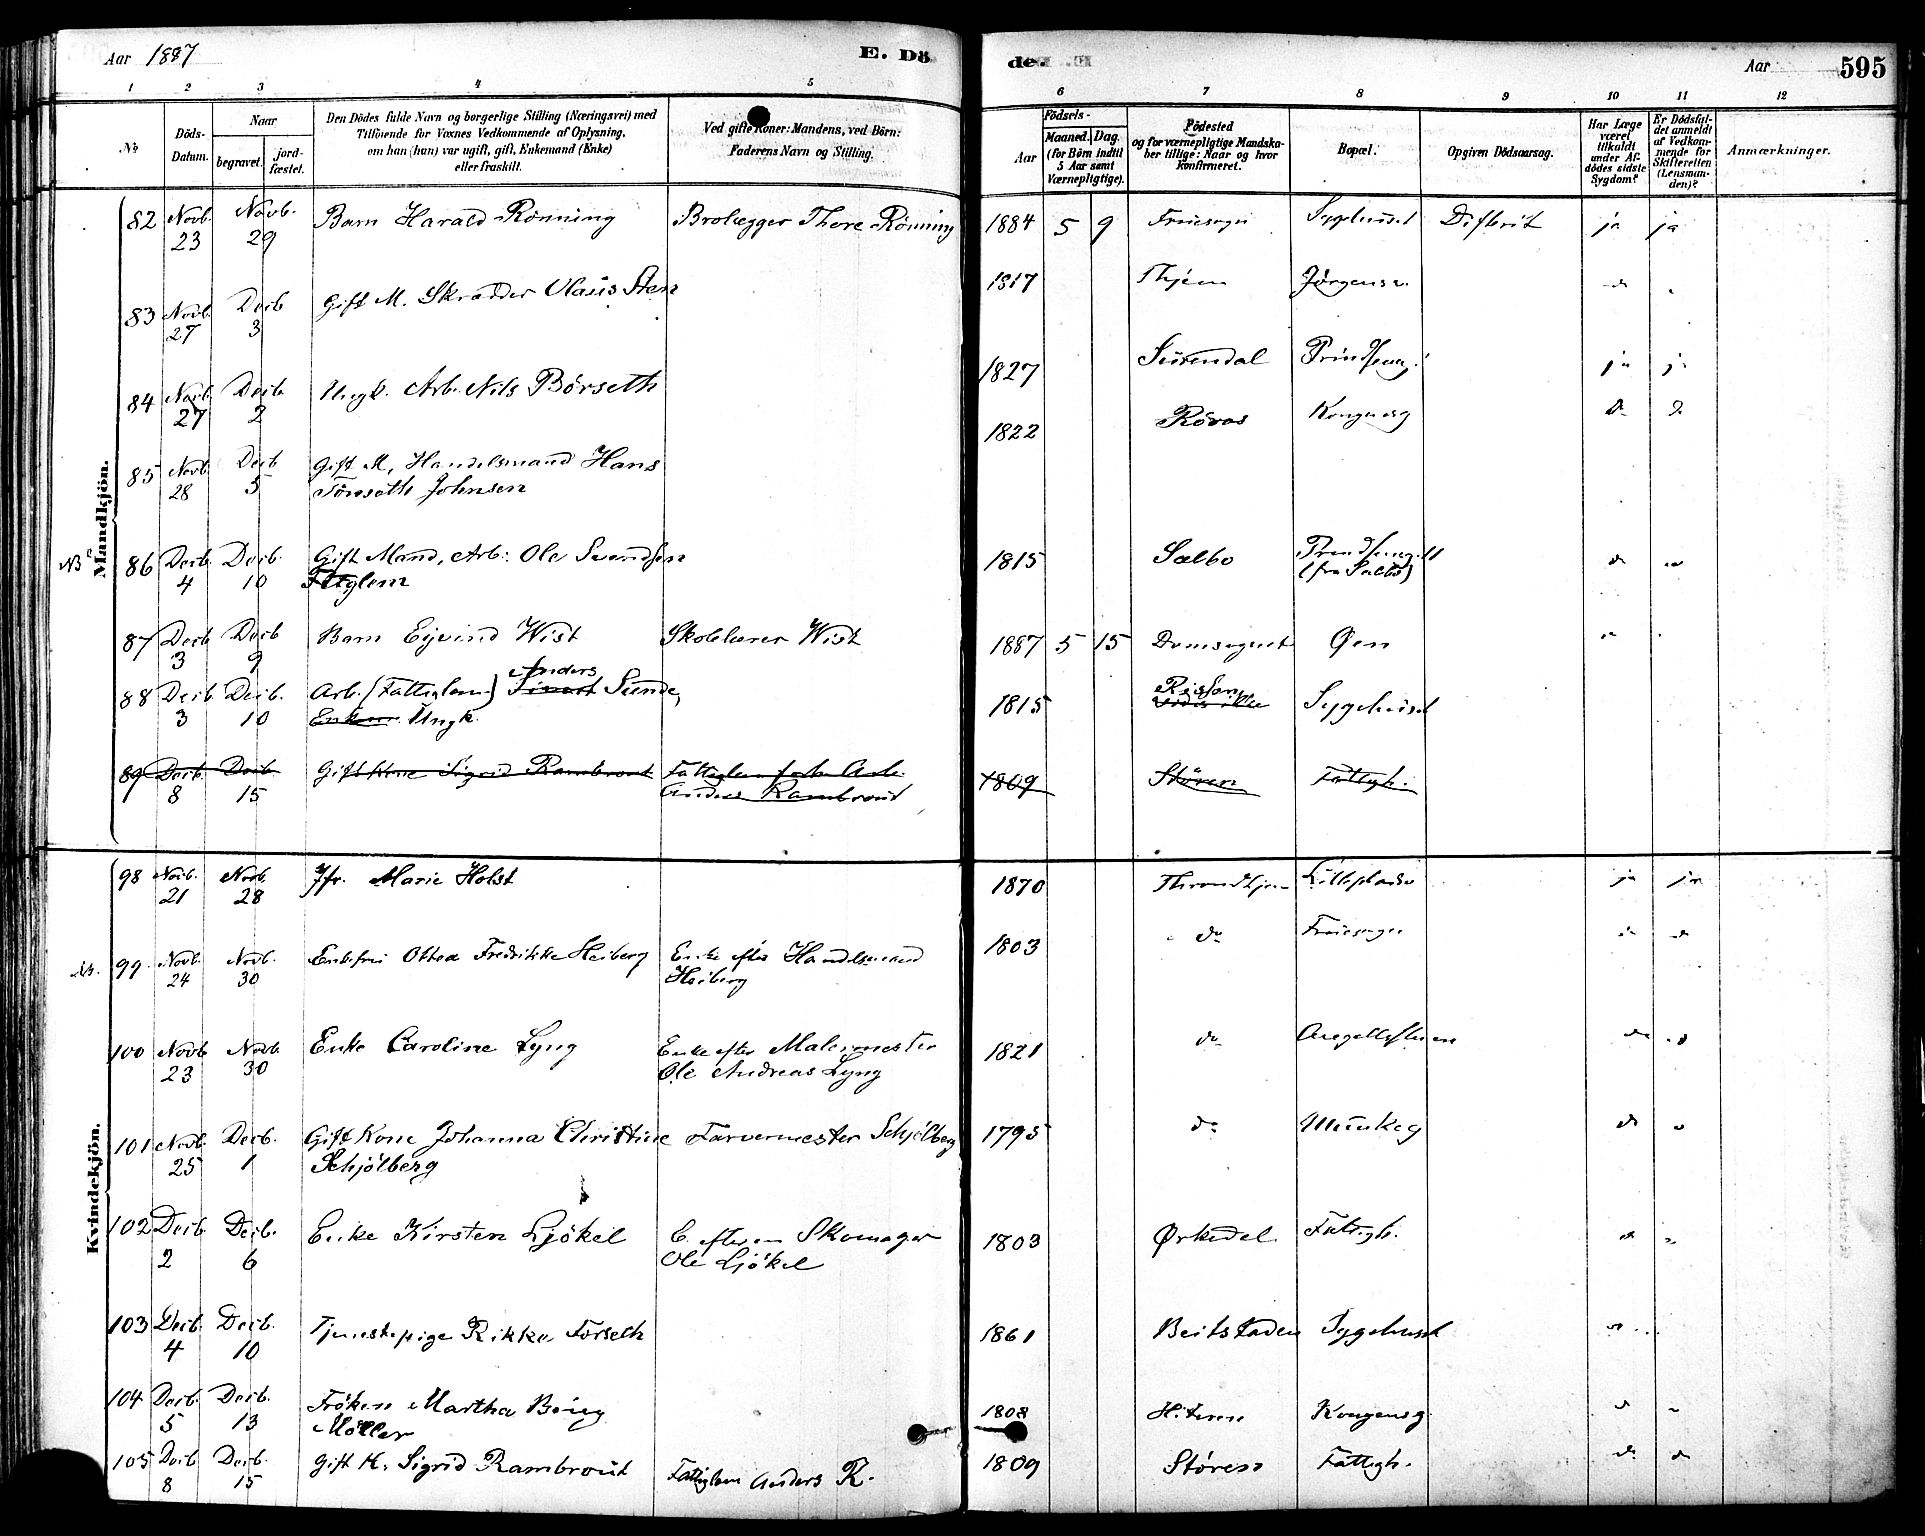 Aar 1887 E. Dö
de. Aar 595
1 2 3 4 5 6 7 8 9 10 11 12
No
Döds-Datum.
Naar
begravet. jord-fæstet.
Den Dödes fulde Navn og borgerlige Stilling (Næringsvei) med
Tilföiende for Voxnes Vedkommende af Oplysning,
om han (hun) var ugift, gift, Enkemand (Enke)
eller fraskilt.
Ved gifte Koner: Mandens, ved Börn:
Faderens Navn og Stilling.
Födsels-
Aar Maaned. Dag.
(for Börn indtil
5 Aar samt
Værnepligtige).
Födested
og for værnepligtige Mandskaber tillige: Naar og hvor
konfirmeret.
Bopæl.
Opgiven Dödsaarsag.
Har Læge
været
tilkaldt
under Afdödes sidste
Sygdom?
Er Dödsfaldet anmeldt
af Vedkommende for
Skifteretten
(Lensmanden)?
Anmærkninger.
Mandkjön.
82 Novb. 23 Novb. 29 Barn Harald Rönning Brolægger Thore Rönning 1884 5 9 Fruesogn Sygehuset Difterit ja ja
83 Novb. 27 Decb 3 Gift M. Skrædder Olaus Sten 1817 Jörgensv. do
84 Novb. 27 Decb. 2 Ungk. Arb. Nils Börseth 1827 Surendal ja j.
85 Novb. 28 Decb 5 Gift M, Handelsmand Hans
Tönseth Johnsen 1822 Röros Kongensg do
NB 86 Decb. 4 Decb. 10 Gift Mand, Arb: Ole Svendsen
1815 Sælbo
(fra Sælbo) do
87 Decb 3 Decb 9 Barn Ejvind Wist Skolelærer Wist 1887 5 15 Domsognet Öen
88 Decb 3 Decb. 10 Arb. (Fattiglem) Sivert Anders Sunde,
Enkem. Ungk. 1815 Rissen Sygehuset
89 Decb. 8 Decb. 15 Gift Kone Sigrid Rambrout Fattiglem Arb.
Anders Rambrout 1809 Stören Fattigh.
Kvindekjön.
98 Novb. 21 Novb. 28 Jfr. Marie Holst 1870 Throndhjem ja ja
99 Novb. 24 Novb. 30 Enkefru Ottea Fredrikke Heiberg Enke efter Handelsmand
Heiberg 1803 do
100 Novb 23 Novb. 30 Enke Caroline Lyng Enke efter Malermester
Ole Andreas Lyng 1821 do do
101 Novb. 25 Decb. 1 Gift Kone Johanna Christine
Schjölberg Farvermester Schjölberg 1795 do Munkeg do
102 Decb. 2 Decb. 6 Enke Kirsten Ljökel E. efter Skomager
Ole Ljökel 1803 Ørkedal Fattigh. do
103 Decb. 4 Decb. 10 Tjenestepige Rikke Forseth 1861 Beitstaden Sygehuset
104 Decb. 5 Decb. 13 Fröken Martha
Möller 1808 Hiteren Kongensg
105 Decb 8 Decb. 15 Gift K. Sigrid Rambrout Fattiglem Anders R. 1809 Stören Fattigh. do do